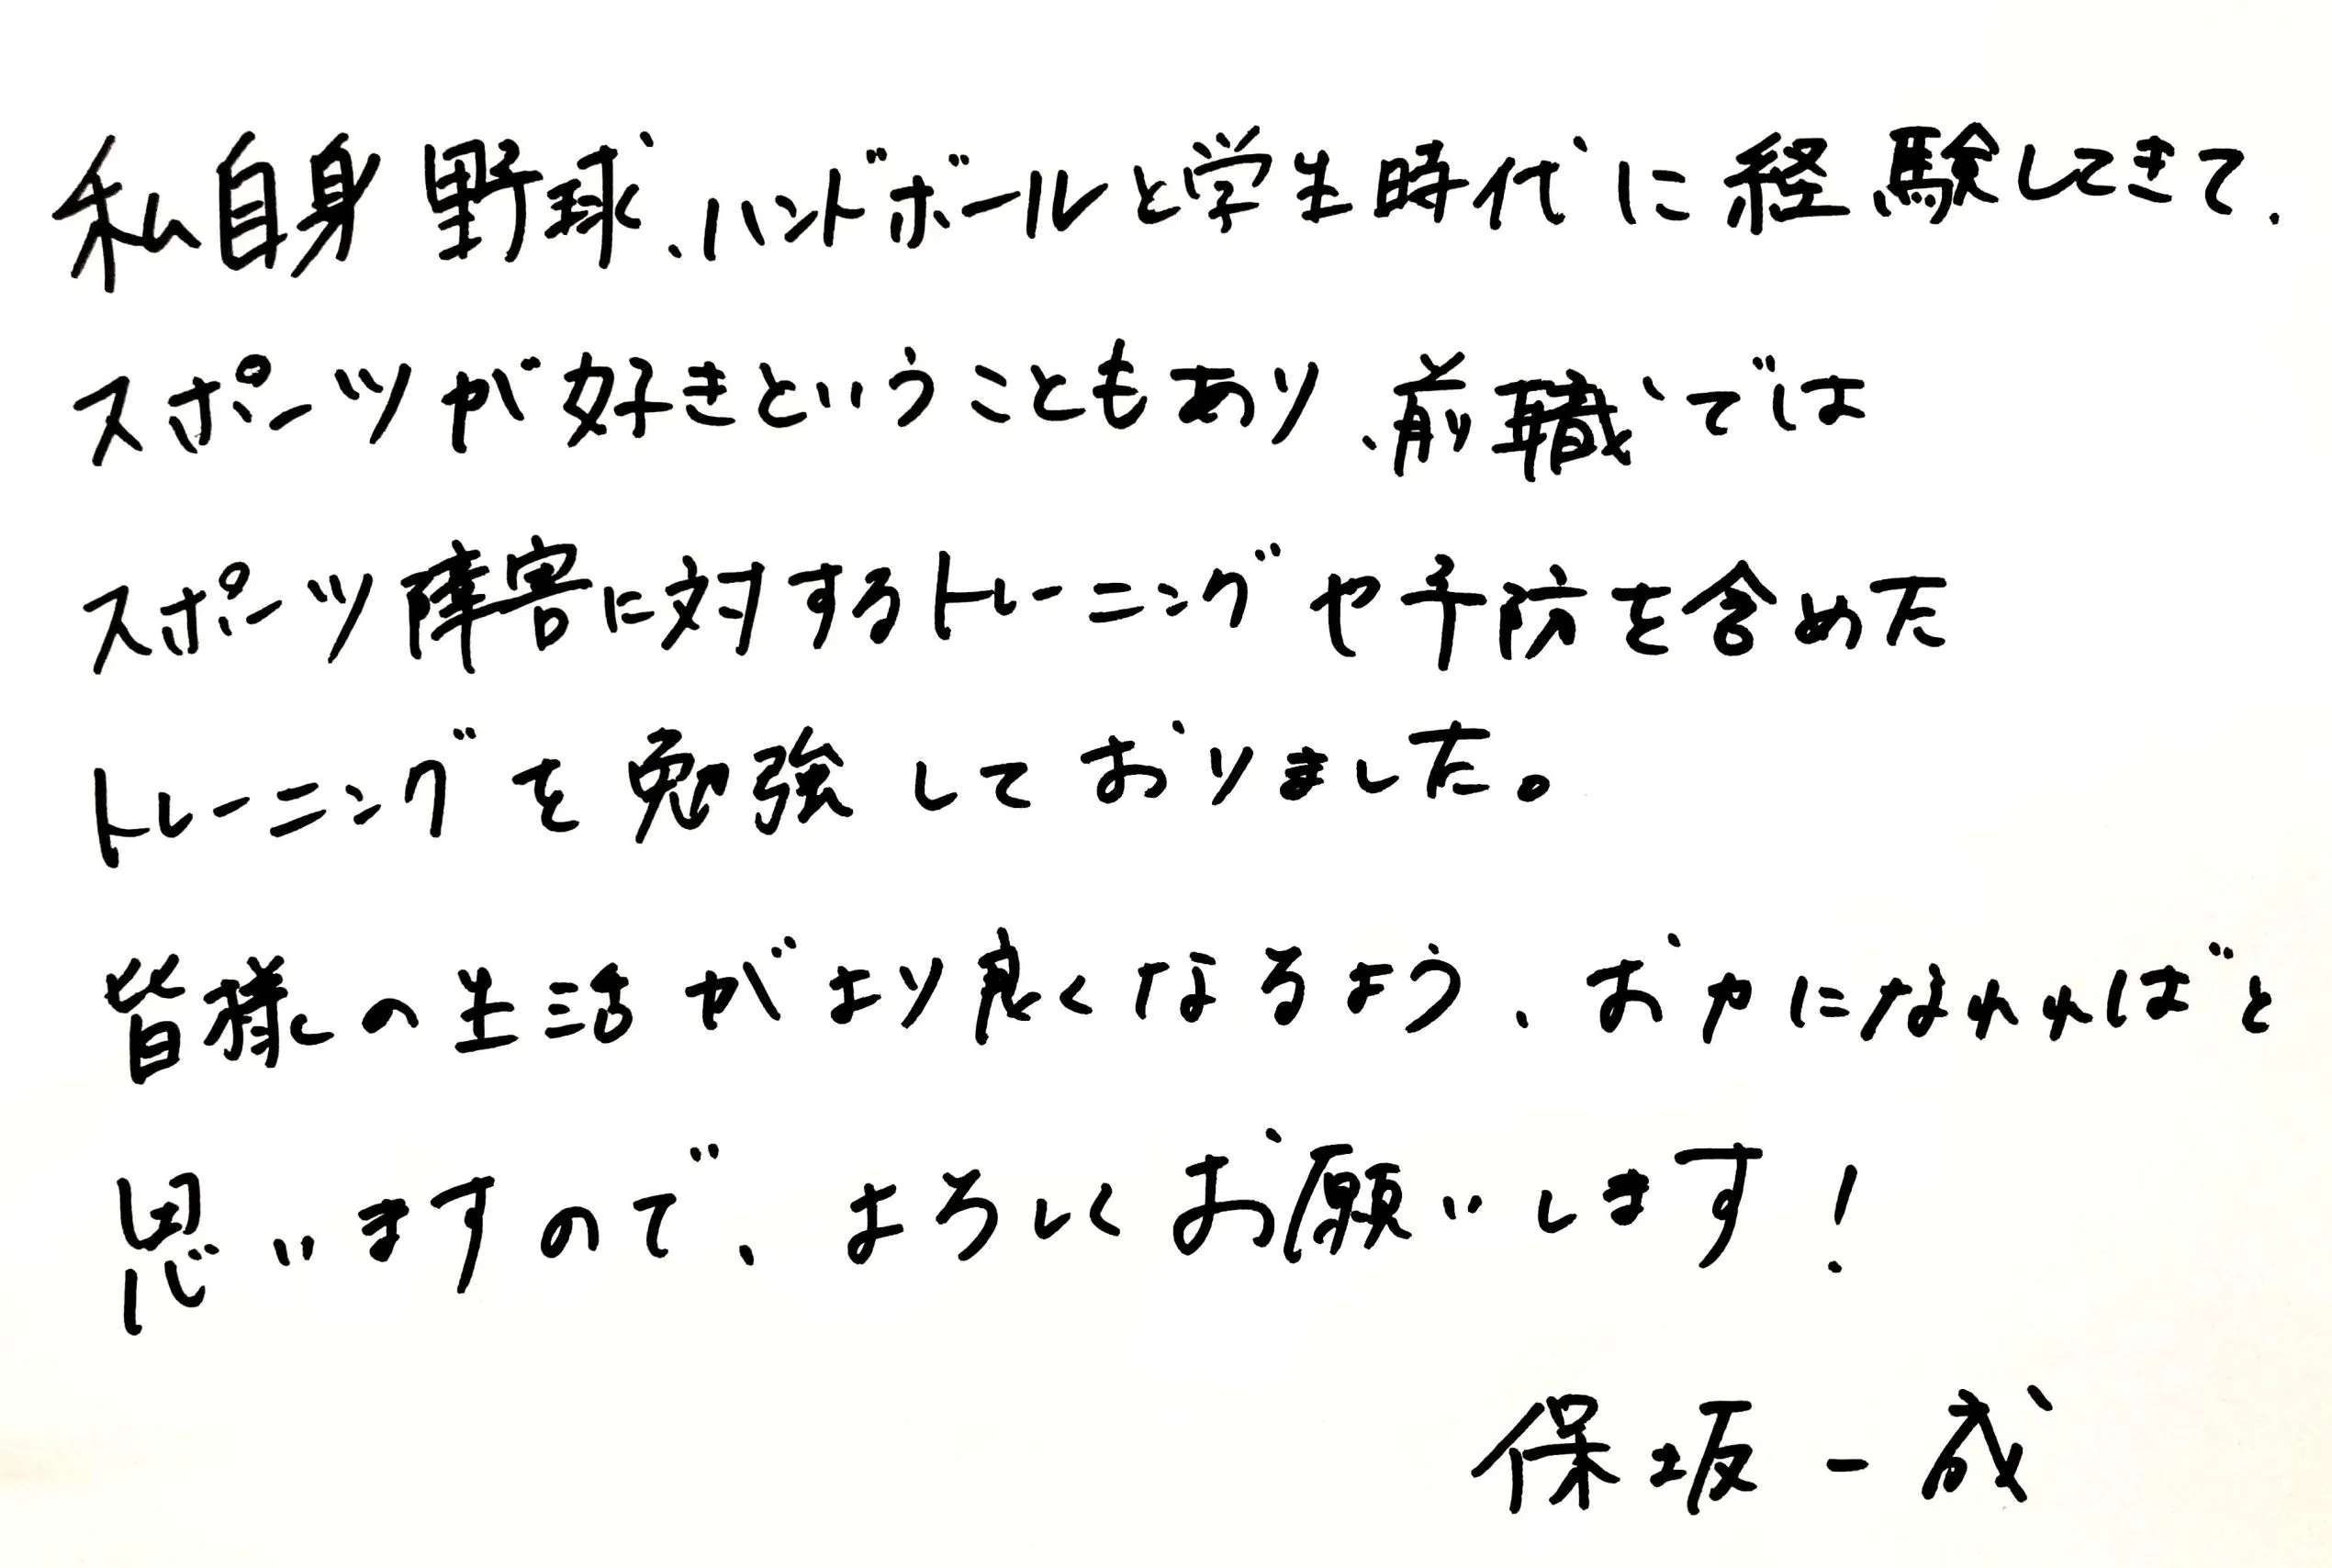 私自身野球、ハンドボールと学生時代に経験してきて、
スポーツが好きということもあり、前職では
スポーツ障害に対するトレーニングや予防を含めた
トレーニングを勉強しておりました。
皆様の生活がより良くなるよう、お力になれればと
思いますので、よろしくお願いします!
保坂一成